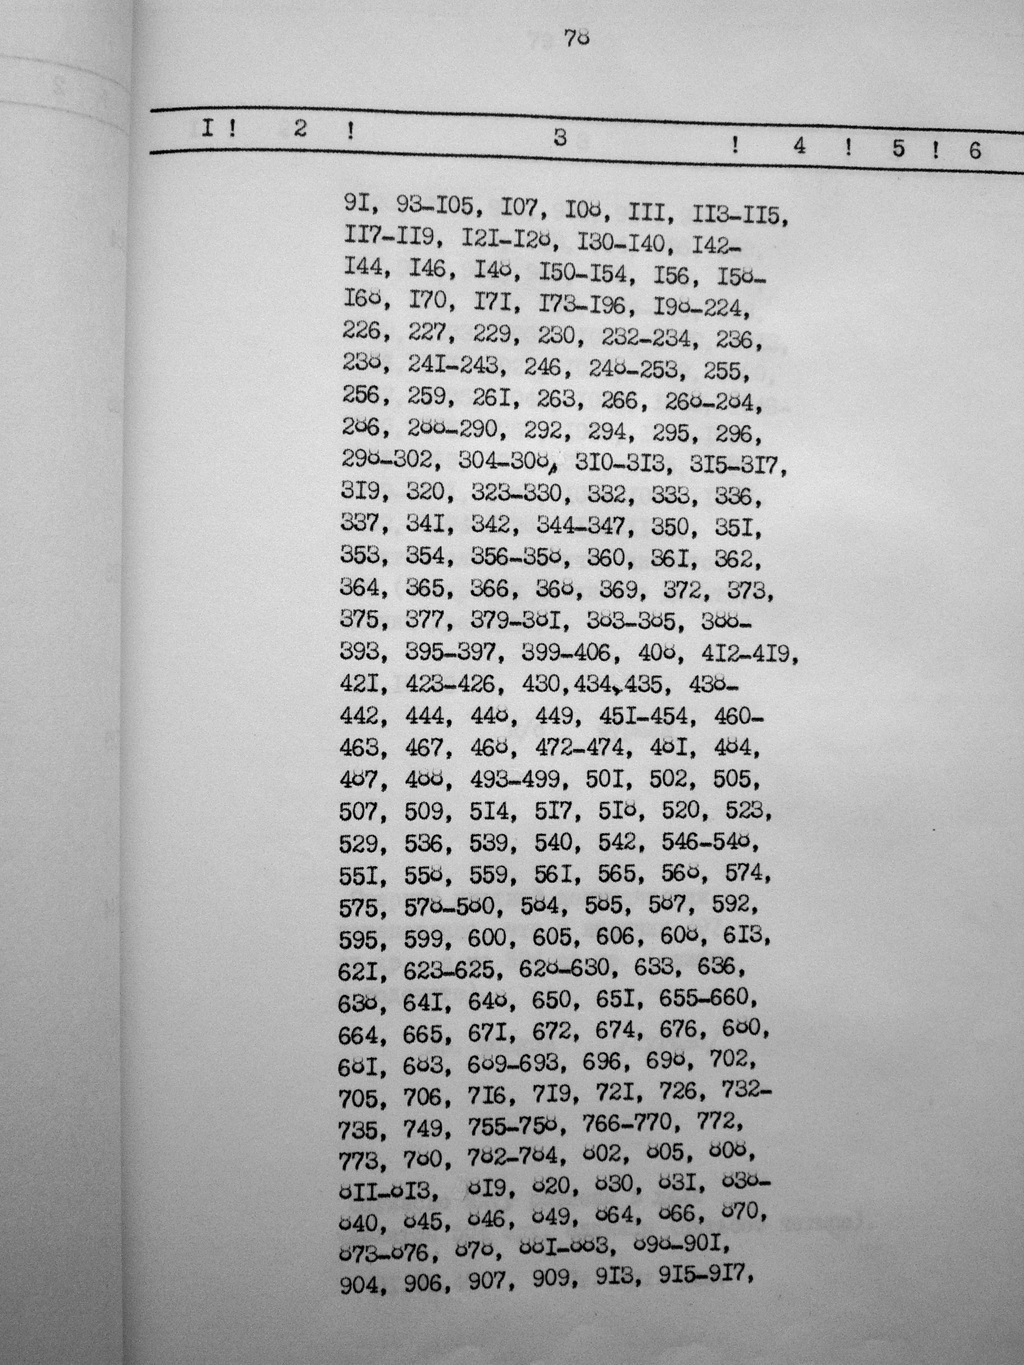 78
I ! 2 ! 3 ! 4 ! 5 ! 6
9I, 93-I05, I07, I08, III, II3-II5,
II7-II9, I2I-I28, I30-I40, I42-
I44, I46, I48, I50-I54, I56, I58-
I68, I70, I7I, I73-I96, I98-224,
226, 227, 229, 230, 232-234, 236,
238, 24I-243, 246, 248-253, 255,
256, 259, 26I, 263, 266, 268-284,
286, 288-290, 292, 294, 295, 296,
298-302, 304-308, 3I0-3I3, 3I5-3I7,
3I9, 320, 323-330, 332, 333, 336,
337, 34I, 342, 344-347, 350, 35I,
353, 354, 356-358, 360, 36I, 362,
364, 365, 366, 368, 369, 372, 373,
375, 377, 379-38I, 383-385, 388-
393, 395-397, 399-406, 408, 4I2-4I9,
42I, 423-426, 430,434,435, 438-
442, 444, 448, 449, 45I-454, 460-
463, 467, 468, 472-474, 48I, 484,
487, 488, 493-499, 50I, 502, 505,
507, 509, 5I4, 5I7, 5I8, 520, 523,
529, 536, 539, 540, 542, 546-548,
55I, 558, 559, 56I, 565, 568, 574,
575, 578-580, 584, 585, 587, 592,
595, 599, 600, 605, 606, 608, 6I3,
62I, 623-625, 628-630, 633, 636,
638, 64I, 648, 650, 65I, 655-660,
664, 665, 67I, 672, 674, 676, 680,
68I, 683, 689-693, 696, 698, 702,
705, 706, 7I6, 7I9, 72I, 726, 732-
735, 749, 755-758, 766-770, 772,
773, 780, 782-784, 802, 805, 808,
8II-8I3, 8I9, 820, 830, 83I, 838-
840, 845, 846, 849, 864, 866, 870,
873-876, 878, 88I-883, 898-90I,
904, 906, 907, 909, 9I3, 9I5-9I7,